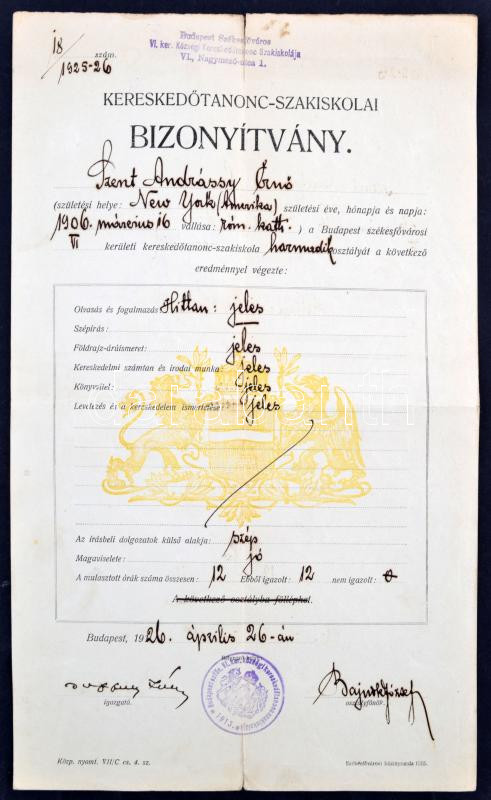 18 szám.
1925-26
Budapest Székesfőváros
VI. ker. Községi Kereskedőtanonc Szakiskolája
VI., Nagymező-utca 1.
KERESKEDŐTANONC-SZAKISKOLAI
BIZONYÍTVÁNY.
Szent Andrássy Ernő
(születési helye: New York (Amerika) születési éve, hónapja és napja:
1906. március 16 vallása: róm. kath. ) a Budapest székesfővárosi
VI kerületi kereskedőtanonc-szakiskola harmadik osztályát a következő
eredménnyel végezte:
Olvasás és fogalmazás Hittan: jeles
Szépírás:
Földrajz-áruismeret: jeles
Kereskedelmi számtan és irodai munka: jeles
Könyvvitel: jeles
Levelezés és a kereskedelem ismertetése: jeles
Az írásbeli dolgozatok külső alakja: szép
Magaviselete: jó
A mulasztott órák száma összesen: 12 Ebből igazolt: 12 nem igazolt: 0
A következő osztályba fölléphet.
Budapest, 1926. április 26-án
igazgató.
osztályfőnök.
Közp. nyomt. VII/C cs. 4. sz.
Székesfővárosi házinyomda 1925.